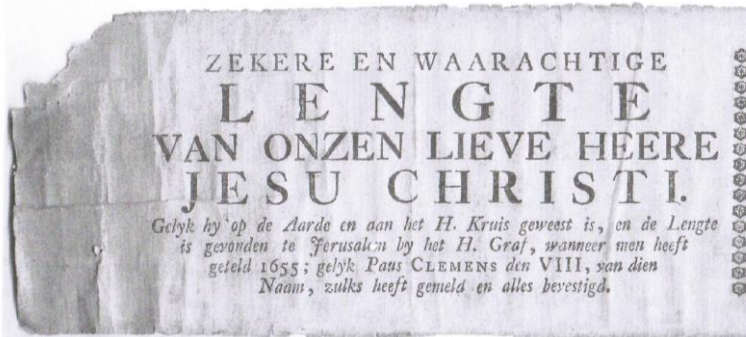 ZEKERE EN WAARACHTIGE
LENGTE
VAN ONZEN LIEVE HEERE
JESU CHRISTI.
Gelyk hy op de Aarde en aan het H. Kruis geweest is, en de Lengte
is gevonden te Jerusalem by het H. Graf, wanneer men heeft
geteld 1655; gelyk Paus CLEMENS den VIII, van dien
Naam, zulks heeft gemeld en alles bevestigd.